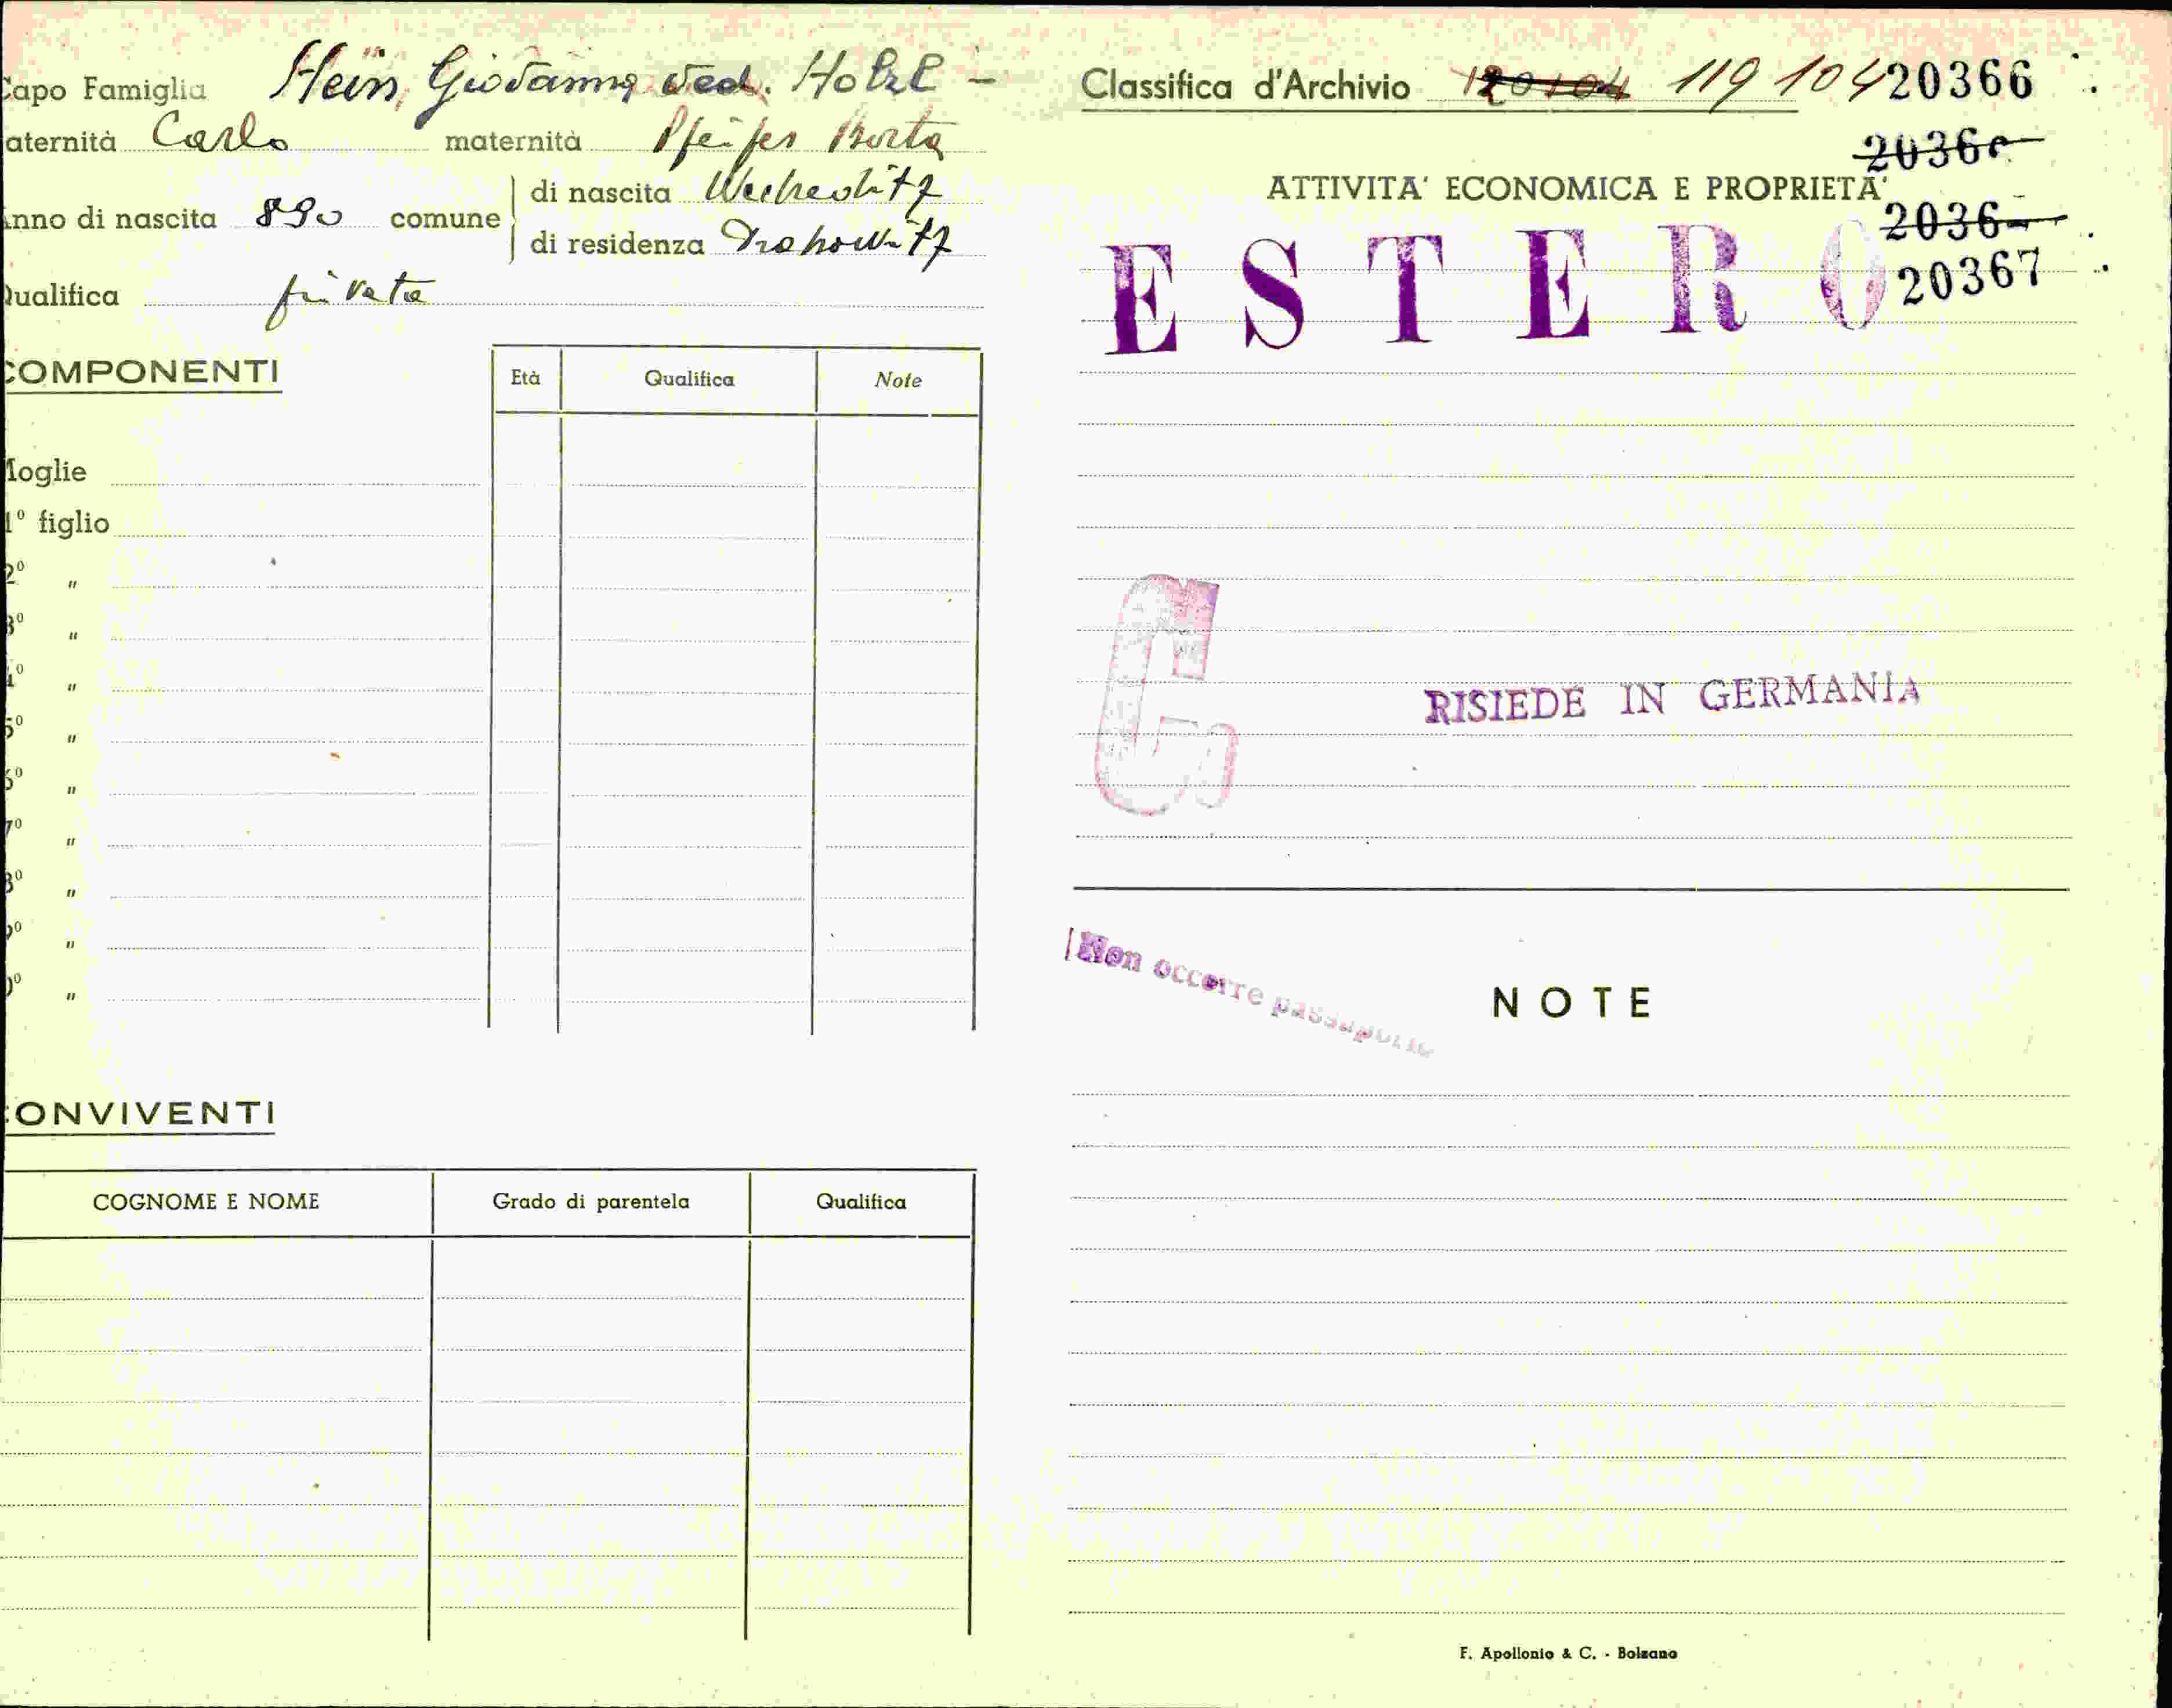 Capo Famiglia Hein, Giovanna ved. Holzl -
aternità Carlo maternità Pfeifer Berta
Anno di nascita 890 comune di nascita
di residenza
Qualifica privata
COMPONENTI
Età Qualifica Note
Moglie
1° figlio
2° "
3° "
4° "
5° "
6° "
7° "
8° "
9° "
0° "
CONVIVENTI
COGNOME E NOME Grado di parentela Qualifica
Classifica d'Archivio 120104 119 104 20366
2036
ATTIVITA' ECONOMICA E PROPRIETA'
2036
ESTERO 20367
G
RISIEDE IN GERMANIA
Non occorre passaporto
NOTE
F. Apollonio & C. - Bolzano